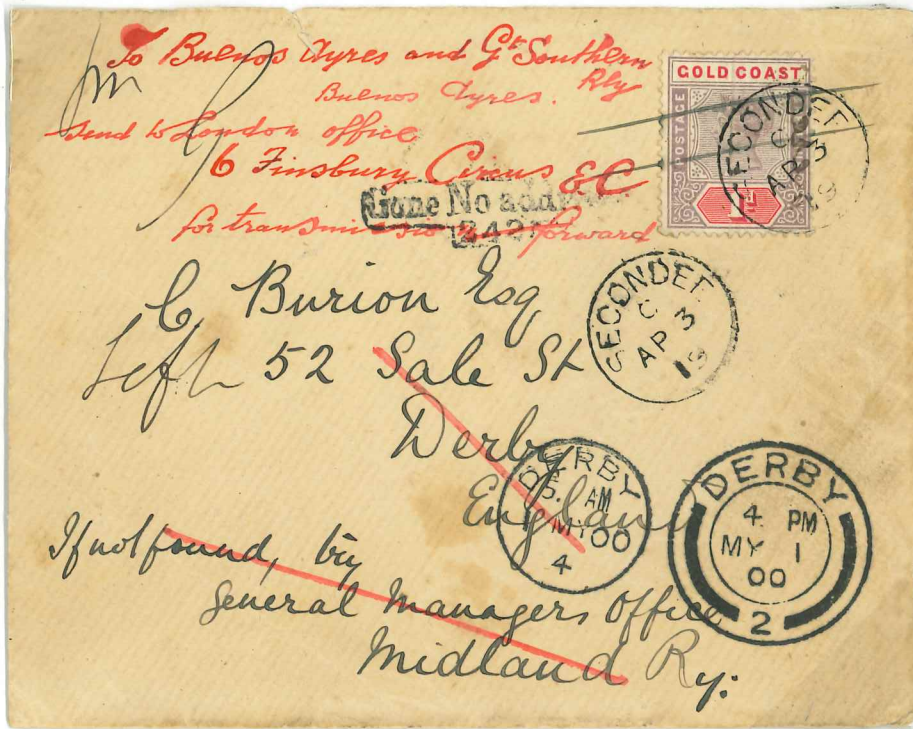 To Buenos Ayres and Gt Southern
Rly
Buenos Ayres.
Send to London office
6 Finsbury Circus E C
for transmission forward
Gone No
242
GOLD COAST
POSTAGE
SECONDEE
C
AP 3
19
SECONDEE
C
AP 3
19
C Burion Esq
Left 52 Sale St
Derby
England
DERBY
AM
MY 00
4
DERBY
4 PM
MY 1
00
2
If not found, try
General Managers Office
Midland Ry: